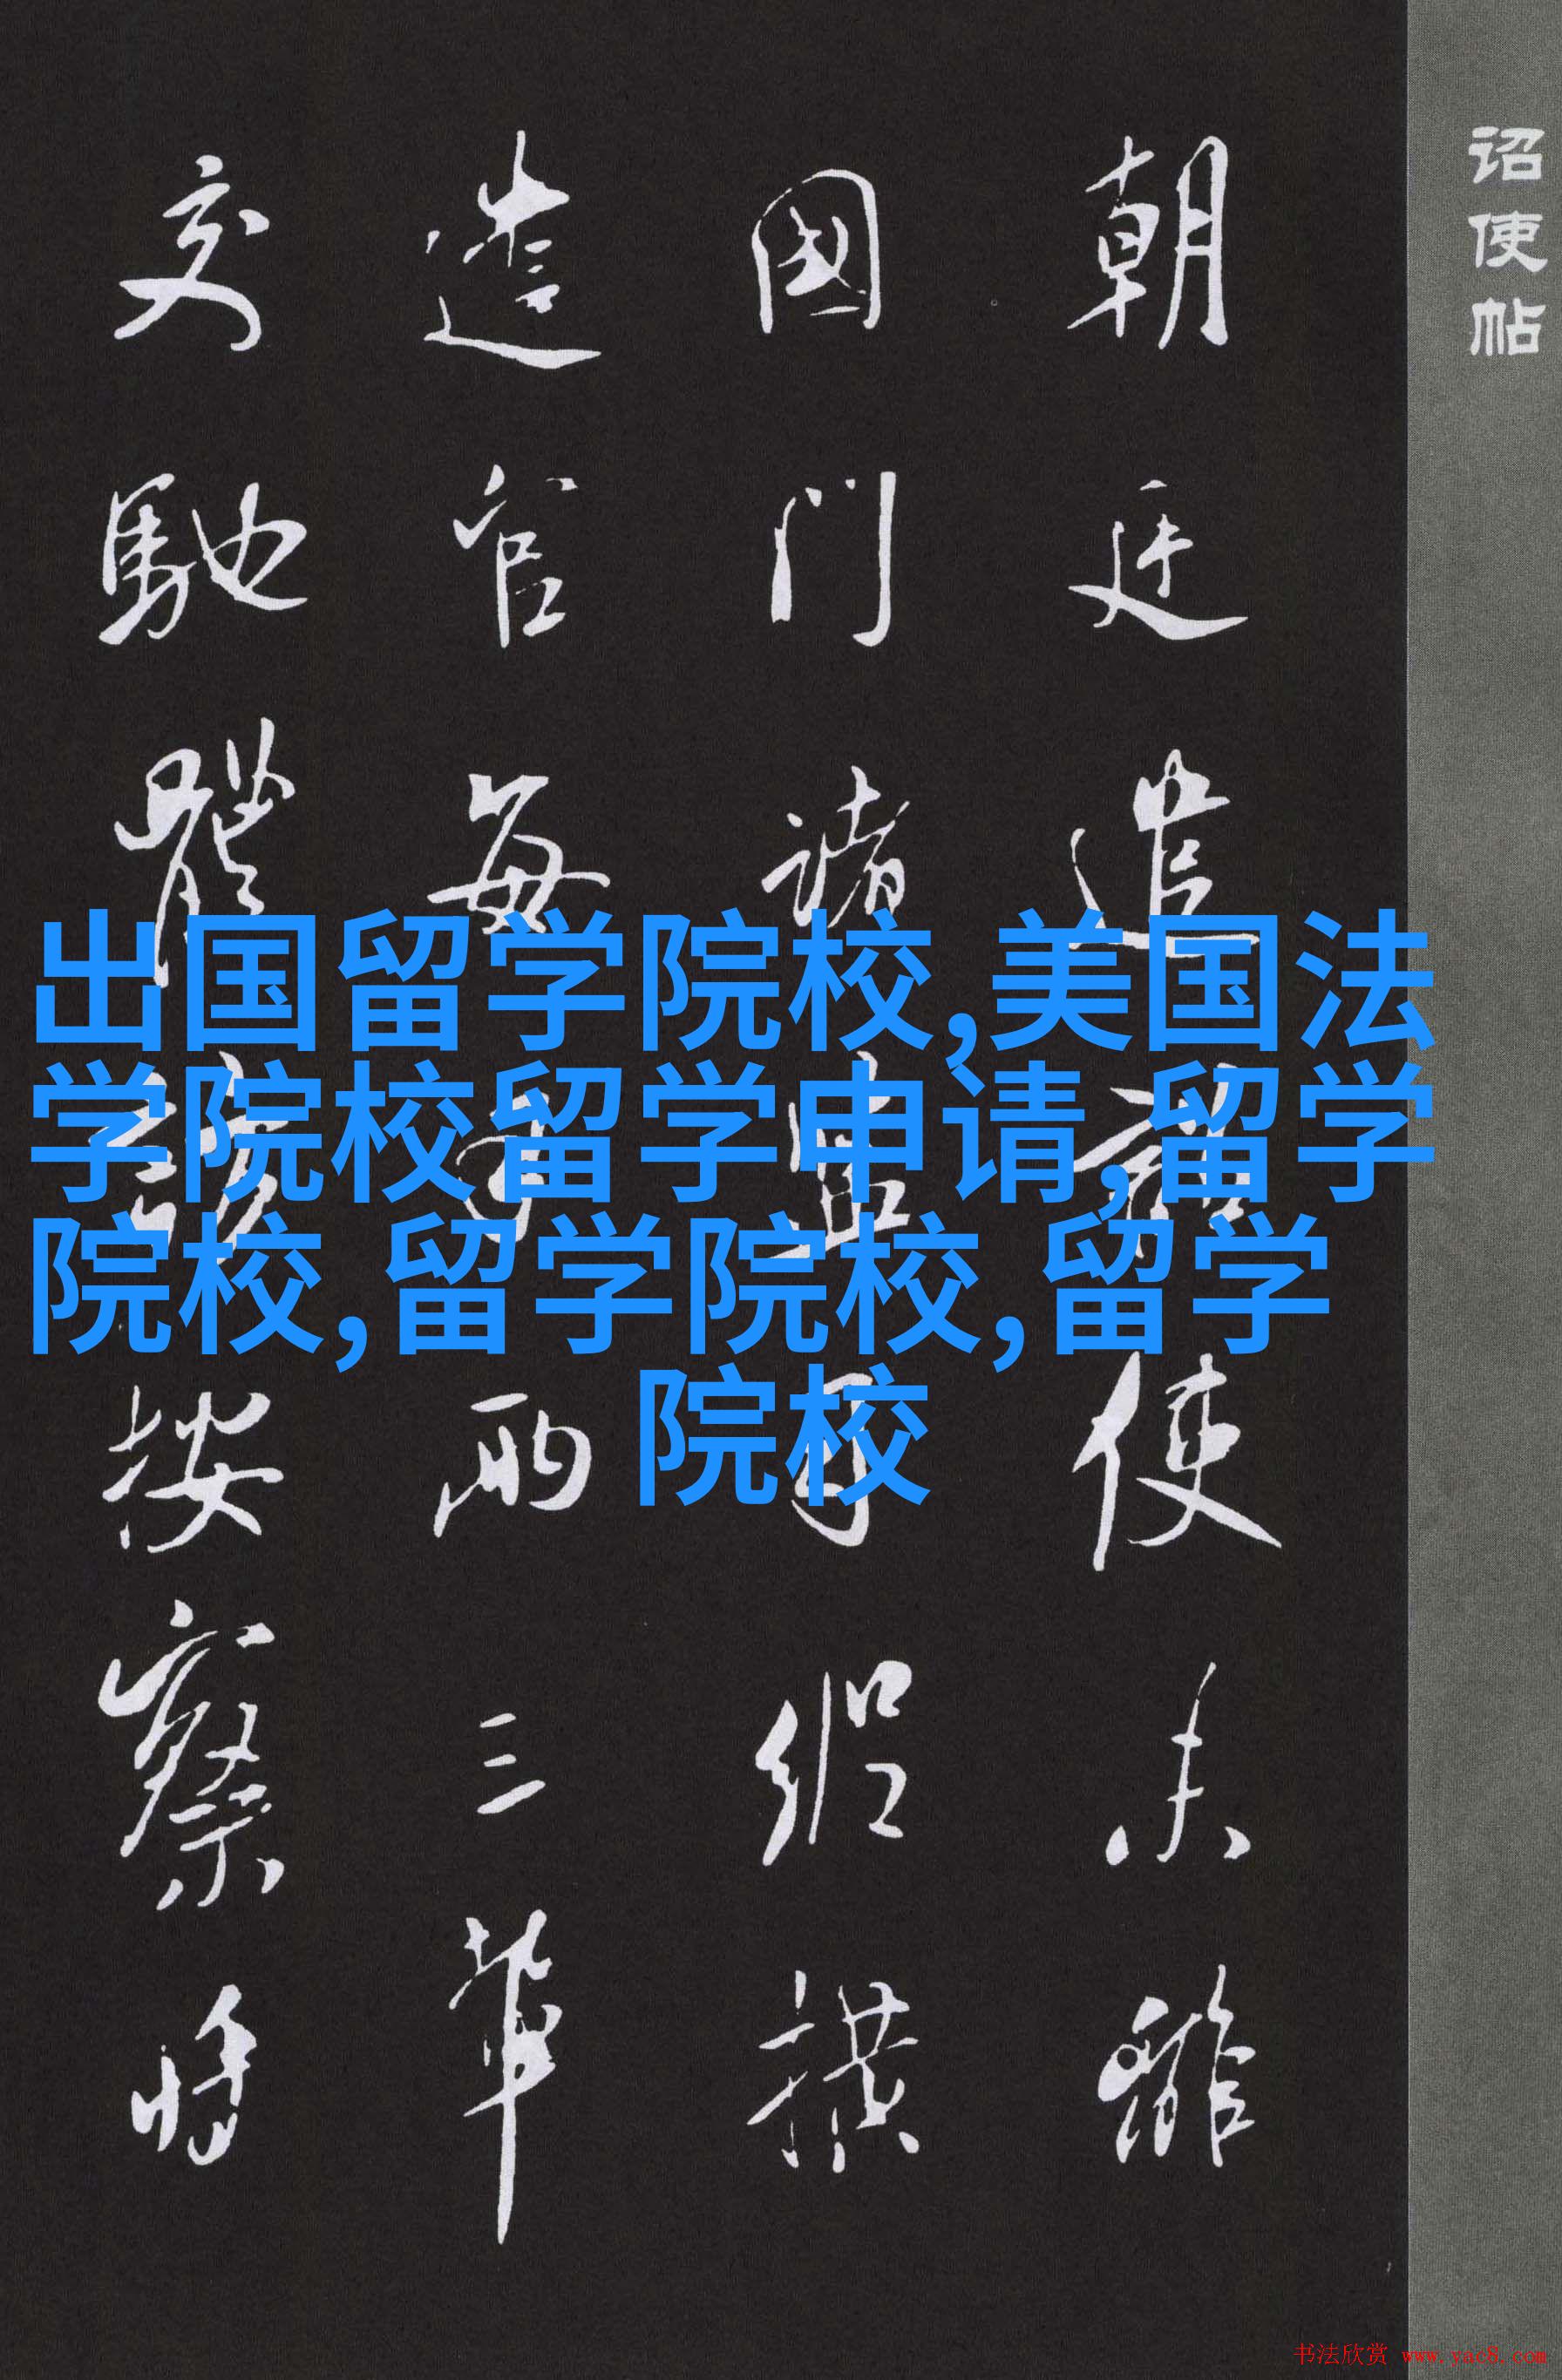 诏使帖
朝廷遣 使未
國門諸 司縱横
遣官每 两三輩
交馳 按察
出国留学院校,美国法
学院校留学申请,留学
院校,留学院校,留学
院校
书法欣赏 www.yac8.com